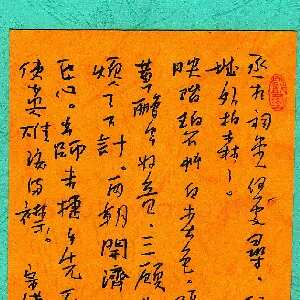 丞相祠堂何處尋。
城外柏森々。
映階碧草自春色。
黃鸝空好音。三顧
煩天下計。兩朝開濟
臣心。出師未捷身先
使英雄淚滿襟。